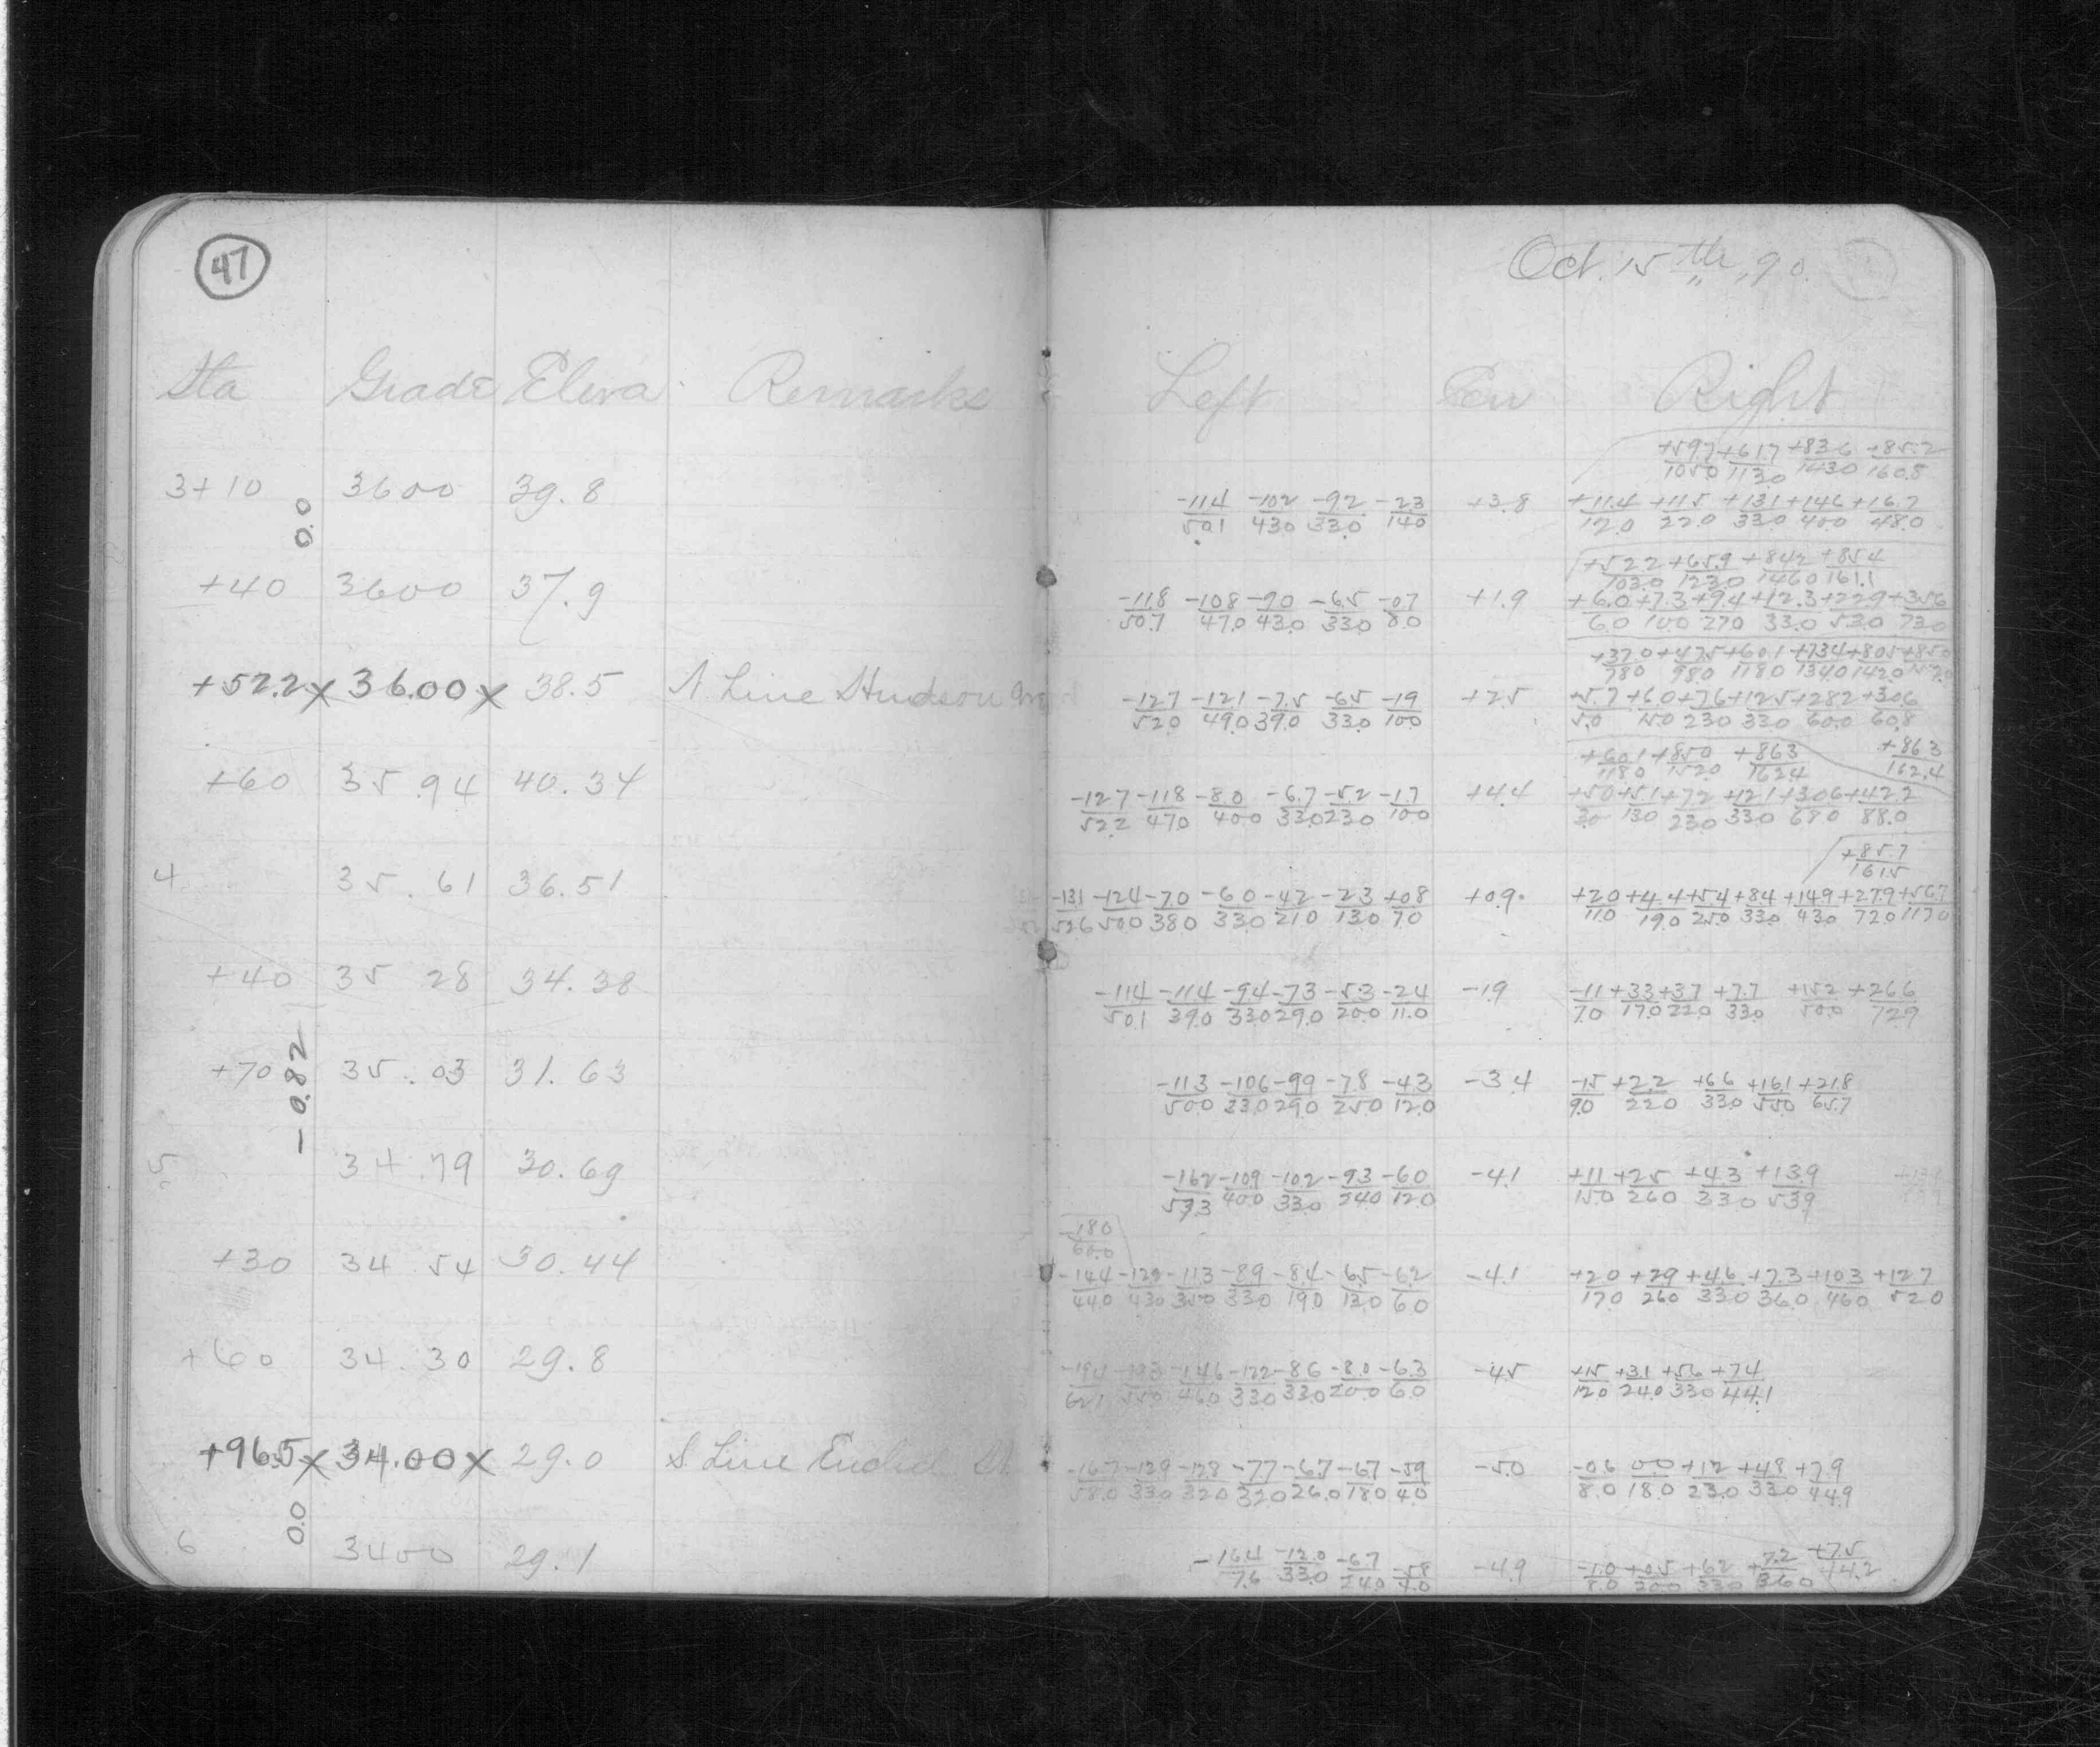 47
Oct. 15th, 90.
Sta Grade Eleva. Remarks Left Cen Right
+59.7/105.0 +61.7/113.0 +83.6/143.0 +85.2/160.8
3+10 3600 39.8 -11.4/50.1 -10.2/43.0 -9.2/33.0 -2.3/14.0 +3.8 +11.4/12.0 +11.5/22.0 +13.1/33.0 +14.6/40.0 +16.7/48.0
0.0
+52.2/103.0 +65.9/123.0 +84.2/146.0 +85.4/161.1
+40 3600 37.9 -11.8/50.7 -10.8/47.0 -9.0/43.0 -6.5/33.0 -0.7/8.0 +1.9 +6.0/6.0 +7.3/10.0 +9.4/27.0 +12.3/33.0 +22.9/53.0 +35.6/73.0
+37.0/78.0 +47.5/98.0 +60.1/118.0 +73.4/134.0 +80.5/142.0 +85.0
+52.2 x 36.00 x 38.5 N Line Hudson -12.7/52.0 -12.1/49.0 -7.5/39.0 -6.5/33.0 -1.9/10.0 +2.5 +5.7/5.0 +6.0/15.0 +7.6/23.0 +12.5/33.0 +28.2/60.0 +30.6/60.8
+60.1/118.0 +85.0/152.0 +86.3/162.4 +86.3/162.4
+60 35.94 40.34 -12.7/52.2 -11.8/47.0 -8.0/40.0 -6.7/33.0 -5.2/23.0 -1.7/10.0 +4.4 +5.0/3.0 +5.1/13.0 +7.2/23.0 +12.1/33.0 +30.6/68.0 +42.2/88.0
+85.7/161.5
4 35.61 36.51 -13.1/52.6 -12.4/50.0 -7.0/38.0 -6.0/33.0 -4.2/21.0 -2.3/13.0 +0.8/7.0 +0.9 +2.0/11.0 +4.4/19.0 +5.4/25.0 +8.4/33.0 +14.9/43.0 +27.9/72.0 +56.7/117.0
+40 35.28 34.38 -11.4/50.1 -11.4/39.0 -9.4/33.0 -7.3/29.0 -5.3/20.0 -2.4/11.0 -1.9 -1.1/7.0 +3.3/17.0 +3.7/22.0 +7.7/33.0 +15.2/50.0 +26.6/72.9
+70 35.03 31.63 -11.3/50.0 -10.6/33.0 -9.9/29.0 -7.8/25.0 -4.3/12.0 -3.4 -1.5/9.0 +2.2/22.0 +6.6/33.0 +16.1/55.0 +21.8/65.7
-0.82
5 34.79 30.69 -16.2/57.3 -10.9/40.0 -10.2/33.0 -9.3/24.0 -6.0/12.0 -4.1 +1.1/15.0 +2.5/26.0 +4.3/33.0 +13.9/53.9
-18.0/60.0
+30 34.54 30.44 -14.4/44.0 -12.9/43.0 -11.3/35.0 -8.9/33.0 -8.4/19.0 -6.5/13.0 -6.2/6.0 -4.1 +2.0/17.0 +2.9/26.0 +4.6/33.0 +7.3/36.0 +10.3/46.0 +12.7/52.0
+60 34.30 29.8 -19.4/62.1 -19.3/55.0 -14.6/46.0 -12.2/33.0 -8.6/33.0 -8.0/20.0 -6.3/6.0 -4.5 +1.5/12.0 +3.1/24.0 +5.6/33.0 +7.4/44.1
+96.5 x 34.00 x 29.0 S Line Euclid St -16.7/58.0 -12.9/33.0 -12.8/32.0 -7.7/32.0 -6.7/26.0 -6.7/18.0 -5.9/4.0 -5.0 -0.6/8.0 0.0/18.0 +1.2/23.0 +4.8/33.0 +7.9/44.9
0.0
6 3400 29.1 -16.4/7.6 -12.0/33.0 -6.7/24.0 -5.8/4.0 -4.9 -1.0/8.0 +0.5/20.0 +6.2/33.0 +7.2/36.0 +7.5/44.2